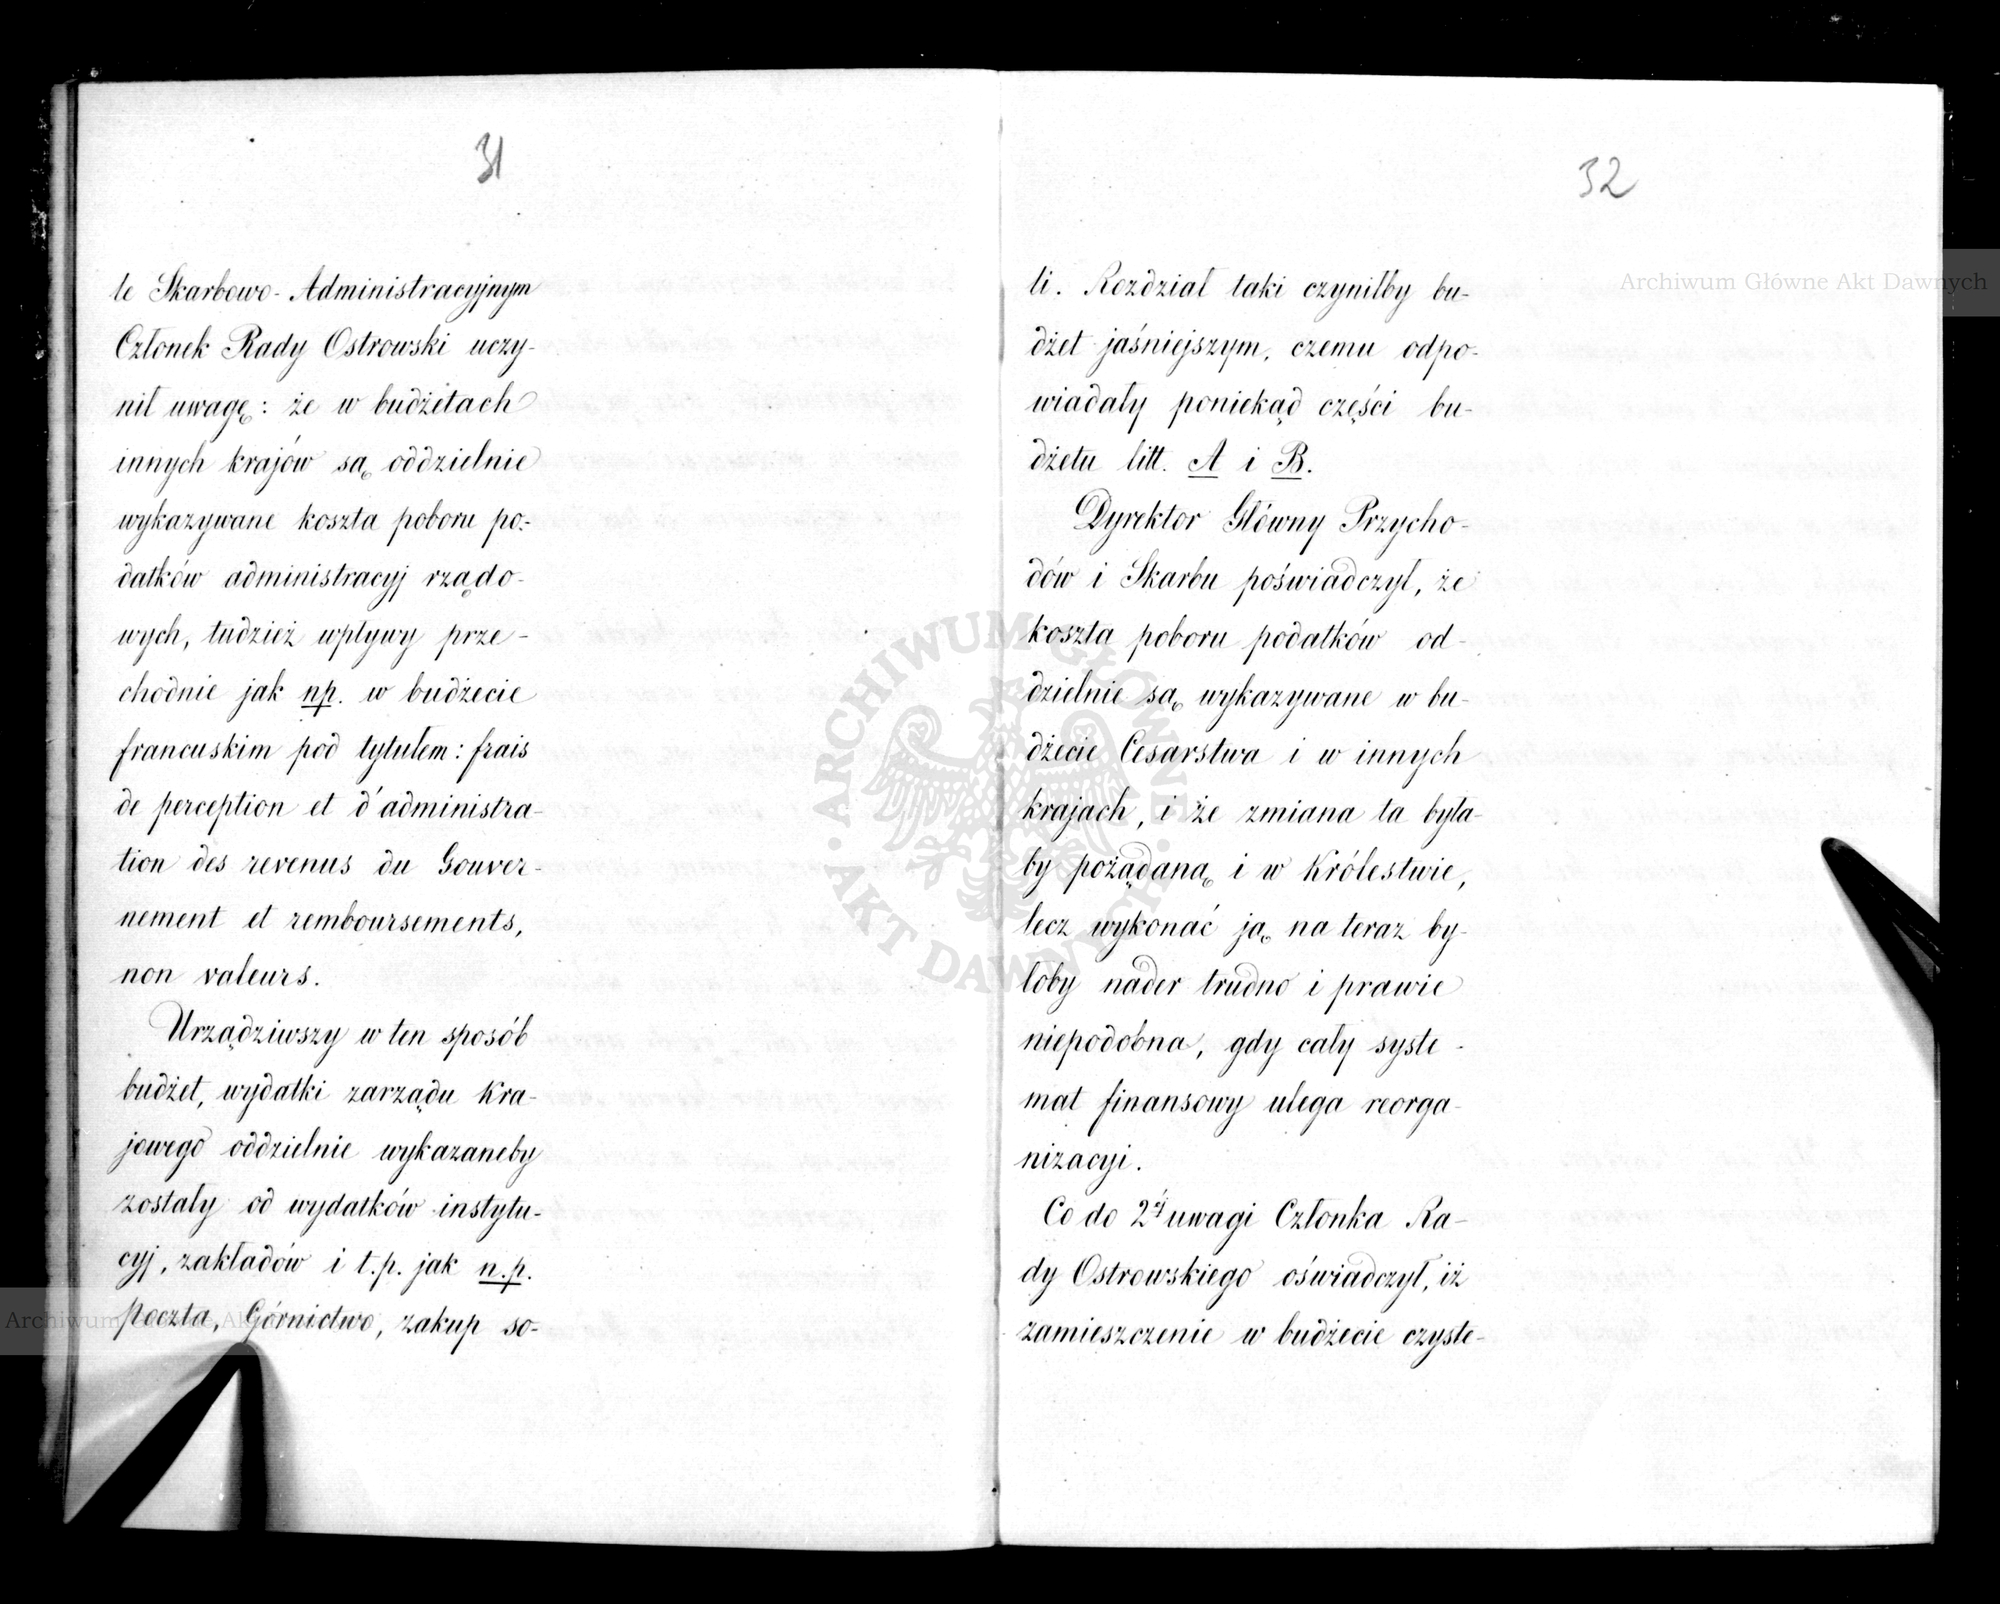 31
le Skarbowo-Administracyjnym
Członek Rady Ostrowski uczy-
nił uwagę: że w budżetach
innych krajów są oddzielnie
wykazywane koszta poboru po-
datków administracyj rządo-
wych, tudzież wpływy prze-
chodnie jak np. w budżecie
francuskim pod tytułem: frais
de perception et d'administra-
tion des revenus du Gouver-
nement et remboursements,
non valeurs.
Urządziwszy w ten sposób
budżet, wydatki zarządu kra-
jowego oddzielnie wykazaneby
zostały od wydatków instytu-
cyj, zakładów i t.p. jak n.p.
poczta, Górnictwo, zakup so-
32
li. Rozdział taki czyniłby bu-
dżet jaśniejszym, czemu odpo-
wiadały poniekąd części bu-
dżetu litt. A i B.
Dyrektor Główny Przycho-
dów i Skarbu poświadczył, że
koszta poboru podatków od-
dzielnie są wykazywane w bu-
dżecie Cesarstwa i w innych
krajach, i że zmiana ta była-
by pożądaną i w Królestwie,
lecz wykonać ją na teraz by-
łoby nader trudno i prawie
niepodobna, gdy cały syste-
mat finansowy ulega reorga-
nizacyi.
Co do 2éj uwagi Członka Ra-
dy Ostrowskiego oświadczył, iż
zamieszczenie w budżecie czyste-
Archiwum Główne Akt Dawnych
ARCHIWUM GŁÓWNE AKT DAWNYCH
Archiwum Główne Akt